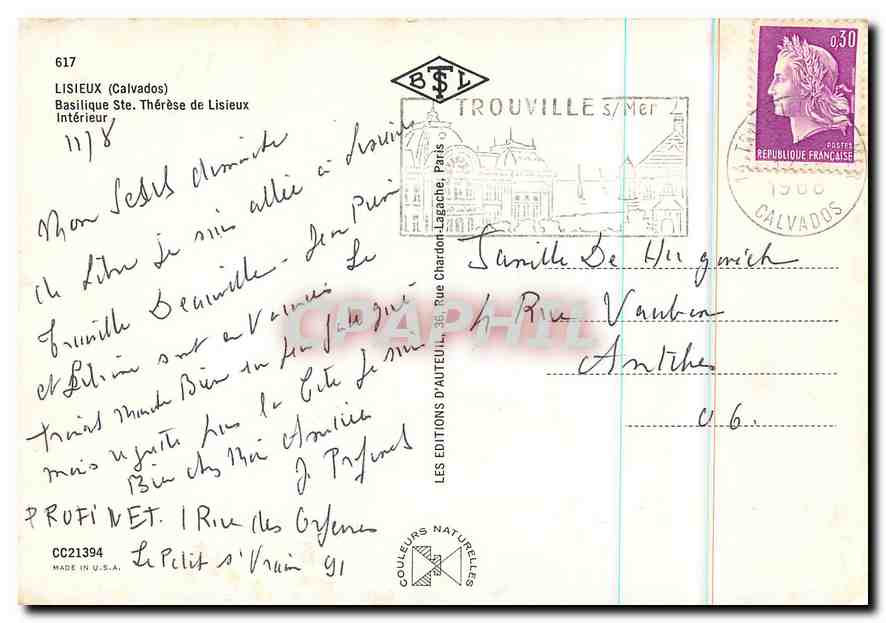 617
LISIEUX (Calvados)
Basilique Ste. Thérèse de Lisieux
Intérieur
11/8
BTSL
TROUVILLE s/Mer
0,30
POSTES
REPUBLIQUE FRANÇAISE
CALVADOS
Mon dimanche
je suis allée à Lisieux
Trouville Deauville - Jean Pierre
et sont en Vacances Le
travail marche Bien un peu fatigué
mais pas la Côte Je suis
Bien chez Moi Amitiés
J. Profinet
PROFINET. 1 Rue des Orfevres
Le Petit St Vrain 91
LES EDITIONS D'AUTEUIL, 36, Rue Chardon-Lagache, Paris
Famille De
4 Rue Vauban
Antibes
06.
CPAPHIL
COULEURS NATURELLES
CC21394
MADE IN U.S.A.